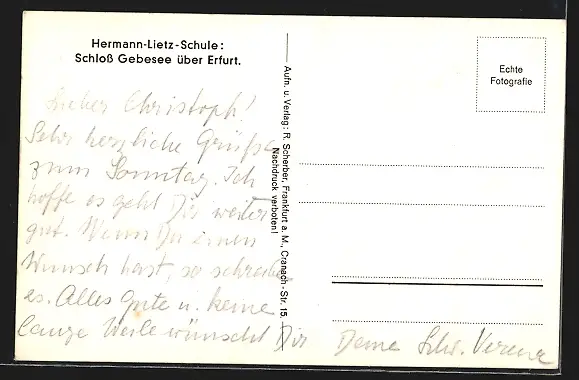 Hermann-Lietz-Schule:
Schloß Gebesee über Erfurt.
Echte
Fotografie
Aufn. u. Verlag: R. Scherber, Frankfurt a. M., Cranach-Str. 15.
Nachdruck verboten!
Lieber Christoph!
Sehr herzliche Grüße
zum Sonntag. Ich
hoffe es geht Dir weiter
gut. Wenn Du einen
Wunsch hast, so schreibe
es. Alles Gute u. keine
lange Weile wünscht Dir Deine Schw. Verena